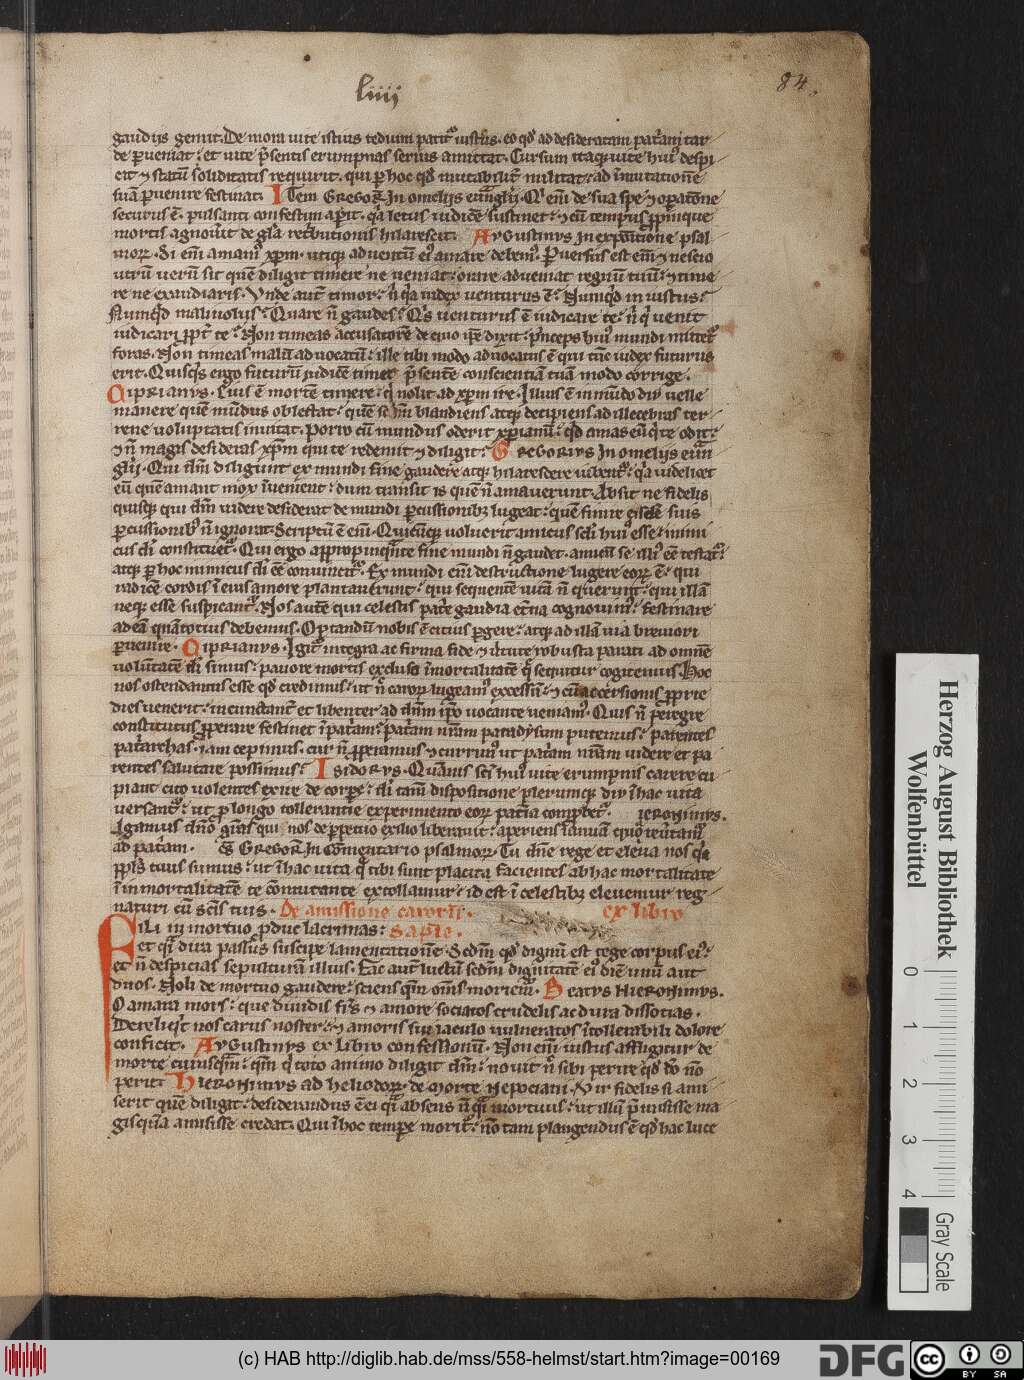 liiij
84.
gaudijs gemit. De mora uite istius tedium patit᷑ iustus. eo qđ ad desideratam pat͛am tar
de ꝑueniat. et uite p̃sentis erumpnas serius amittat. Cursum itaq; uite hui᷒ despi
cit ⁊ statū soliditatis requirit. qui ꝑ hoc qđ mutabilit͛ militat. ad ı̄mutationē
suā ꝑuenire festinat. Item Gregor͛ In omelijs euāglij. Q¹ eni᷒ de sua spe ⁊ oꝑatōne
securus ē. pulsanti confestim aꝑit. q̇a letus iudicē sustinet. ⁊ cū tempus ꝓpinque
mortis agnou͛it de gl̄a ret͛butionis hilarescit. Augustinus In expōitione psal
moꝝ. Si eni᷒ amam᷒ xp̄m. utiq; aduentū ei᷒ amare debem᷒. Ꝑuersus est eni᷒ ⁊ nescio
utrū uerū sit quē diligit timere ne ueniat. orare adueniat regnū tuū. ⁊ time
re ne exaudiaris. Vnde aut̄ timor. n̄ q̇a iudex uenturus ē. Nunq̇d iniustus.
Nunq̇d maliuolus. Quare n̄ gaudes. Q¹s uenturus ē iudicare te. n̄ q̇ uenit
iudicari ꝓpt͛ te. Non timeas accusatorē de quo ip̄e dixit. p͛nceps hui᷒ mundi mittet᷑
foras. Non timeas malū aduocatū. ille tibi modo aduocatus ē qui tūc iudex futurus
erit. Quisq̇s ergo futurū iudicē times p̃sentē conscientiā tuā modo corrige.
Ciprianus. Eius ē mortē timere. q̇ nolit ad xp̄m ire. Illius ē in mūdo diu uelle
manere quē mūdus oblectat. quē sc̄lm blandiens atq; decipiens ad illecebras ter
rene uoluptatis inuitat. Porro cū mundus oderit xp̄ianū. qđ amas eū q̇ te odit.
⁊ n̄ magis desideras xp̄m qui te redemit ⁊ diligit. Gregorius In omelijs euā
glij. Qui dm̄ diligunt ex mundi fine gaudere atq; hilarescere iubent᷑. q̇a uidelicet
eū quē amant mox ı̄ueniēt. dum transit is quē n̄ amauerunt. Absit ne fidelis
quisq; qui dm̄ uidere desiderat de mundi ꝑcussionibꝫ lugeat. quē finire eisdē suis
ꝑcussionib᷒ n̄ ignorat. Scriptū ē eni᷒. Quicūq; voluerit amicus sc̄li hui᷒ esse. inimi
cus di᷒ constituet᷑. Qui ergo appropinquāte fine mundi n̄ gaudet. amicū se illi᷒ eē testat᷑.
atq; ꝑ hoc inimicus di᷒ eē conuincit᷑. Ex mundi eni᷒ destructione lugere eoꝝ ē. qui
radicē cordis ı̄ eius amore plantauerunt. qui sequentē uitā n̄ querunt. qui illā
neq; esse suspicant᷑. Nos autē qui celestis pat͛e gaudia et͛na cognouim᷒. festinare
ad eā quātotius debemus. Optandū nobis ē citius ꝑgere. atq; ad illā uia breuiori
ꝑuenire. Ciprianus. Igit᷑ integra ac firma fide ⁊ u͛tute robusta parati ad omnē
uoluntatē di᷒ simus. pauore mortis excluso ı̄mortalitatē q̄ sequitur cogitemus. Hoc
nos ostendamus esse qđ credimus. ut n̄ caroꝝ lugeam᷒ excessū. ⁊ cū accersionis ꝓprie
dies uenerit. incunctant͛ et libenter ad dn̄m ip̄o uocante ueniam᷒. Quis n̄ peregre
constitutus ꝓperare festinet ı̄ pat͛iam. Pat͛iam nr̄am paradysum putemus. parentes
pat͛iarchas. iam cepimus. cur n̄ ꝓperamus ⁊ currim᷒ ut pat͛iam nr̄am uidere et pa
rentes salutare possimus. Isidorus. Quāuis sc̄i hui᷒ uite erumpnis carere cu
piant cito uolentes exire de corpore. di᷒ tam̄ dispositione plerumq; diu ı̄ hac uita
uersant᷑. ut ꝑ longo tollerantie experimento eoꝝ patiētia comprobet᷑. Jeronimus.
Agamus dn̄o grās qui nos de ꝑpetuo exilio liberauit. aperiens ianuā quo reu͛tam᷑
ad patriam. S Gregor͛ In commentario psalmoꝝ. Tu dn̄e rege et eleua nos q̇a
ppl̄s tuus sumus. ut ı̄ hac uita q̄ tibi sunt placita facientes ab hac mortalitate
ı̄ inmortalitatē te cōmutante extollamur. id est ı̄ celestibꝫ eleuemur reg
naturi cū sc̄is tuis. De amissione caroris. ex libro
Fili in mortuo ꝓduc lacrimas. Sapie.
et q̇i dira passus suscipe lamentationē. Sedm̄ qđ dignū est tege corpus ei᷒.
et n̄ despicias sepulturā illius. Fac aut̄ luctū sedm̄ dignitatē ei᷒ diē unū aut
duos. Noli de mortuo gaudere. sciens qm̄ om̄s moriem᷑. Beatus Hieronimus.
O amara mors. que diuidis fr̄s ⁊ amore sociatos crudelis ac dura dissocias.
Dereliq̇t nos carus noster. ⁊ amoris sui iaculo uulneratos ı̄tollerabili dolore
conficit. Augustinus ex libro confessionū. Non eni᷒ iustus affligitur de
morte cuiusq̄m. qm̄ q̇ toto animo diligit dm̄. nouit n̄ sibi perire qđ do nō
perit. Hieronimus ad heliodoꝝ. de morte nepociani. Vir fidelis si ami
serit quē diligit. desiderandus ē ei q̇i absens n̄ q̇i mortuus. ut illū p̃misisse ma
gis quā amisisse credat. Qui ı̄ hoc tempore morit᷑. nō tam plangendus ē qđ hac luce
Herzog August Bibliothek
Wolfenbüttel
0 1 2 3 4
Gray Scale
(c) HAB http://diglib.hab.de/mss/558-helmst/start.htm?image=00169
DFG
cc BY SA